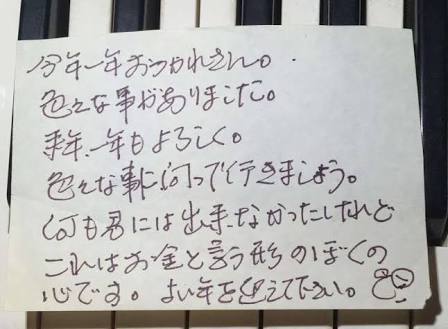 今年一年おつかれさん。
色々な事がありました。
来年、一年もよろしく。
色々な事に向って行きましょう。
何も君には出来なかったけれど
これはお金と言う形のぼくの
心です。よい年を迎えて下さい。